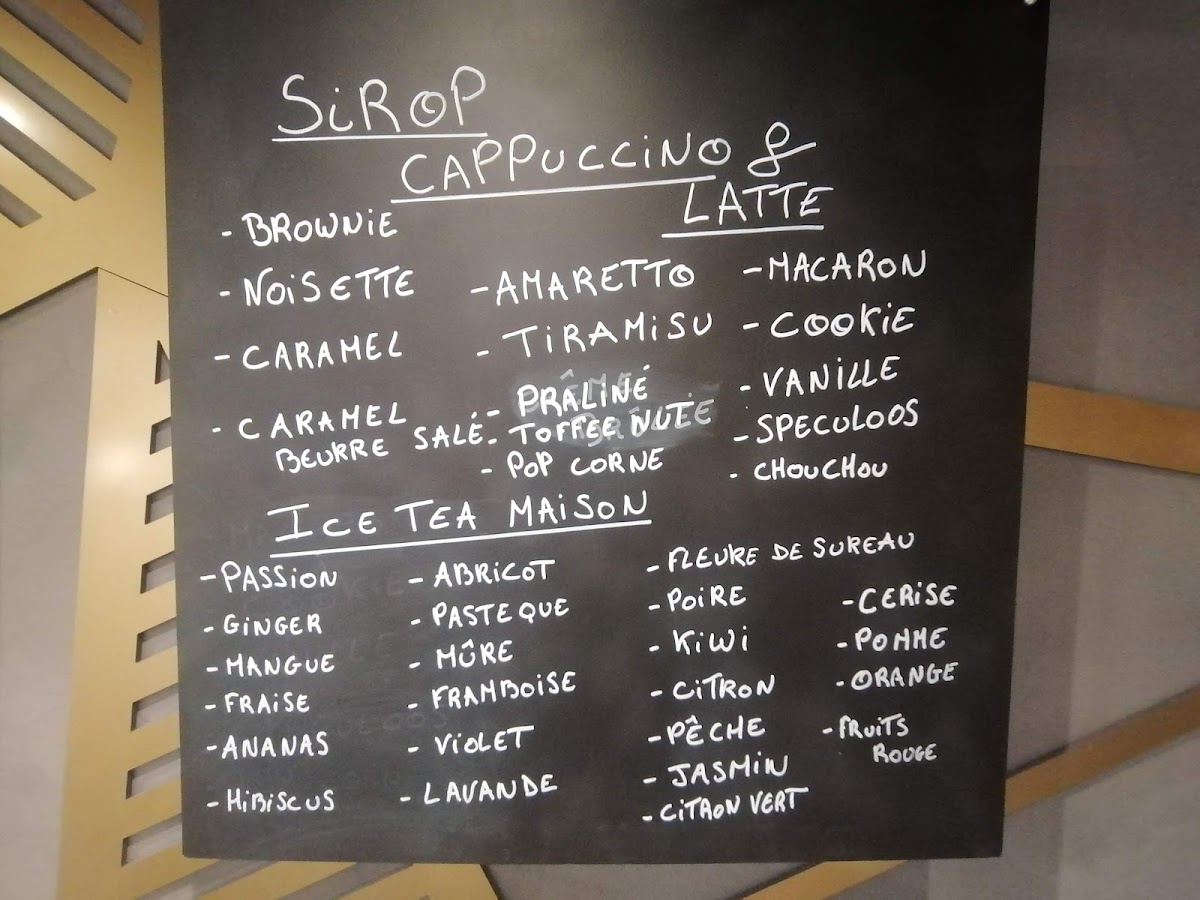 SiROP
CAPPUCCINO &
LATTE
- BROWNiE
- NOiSETTE
- CARAMEL
- CARAMEL
BEURRE SALÉ
- AMARETTO
- TiRAMiSU
- PRALINÉ
- TOFFEE NUTE
- POP CORNE
- MACARON
- COOKiE
- VANiLLE
- SPECULOOS
- CHOUCHOU
ICE TEA MAiSON
- PASSiON
- GiNGER
- MANGUE
- FRAiSE
- ANANAS
- HiBiSCUS
- ABRiCOT
- PASTEQUE
- MÛRE
- FRAMBOiSE
- ViOLET
- LAVANDE
- FLEURE DE SUREAU
- POiRE
- KiWi
- CiTRON
- PÊCHE
- JASMiN
- CiTRON VERT
- CERiSE
- POMME
- ORANGE
- FRUiTS
ROUGE